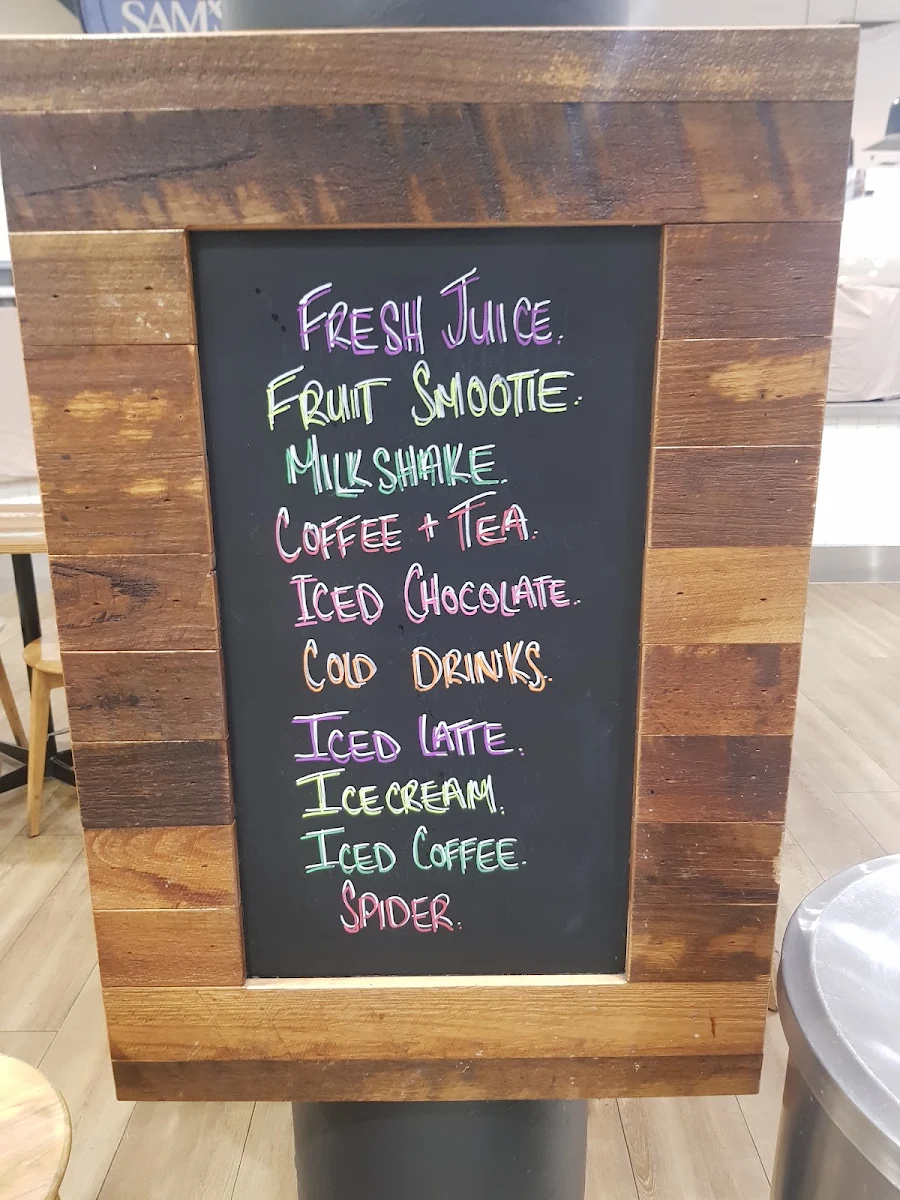 SAM
FRESH JUICE.
FRUIT SMOOTIE.
MILKSHAKE.
COFFEE + TEA.
ICED CHOCOLATE.
COLD DRINKS.
ICED LATTE.
ICECREAM.
ICED COFFEE.
SPIDER.